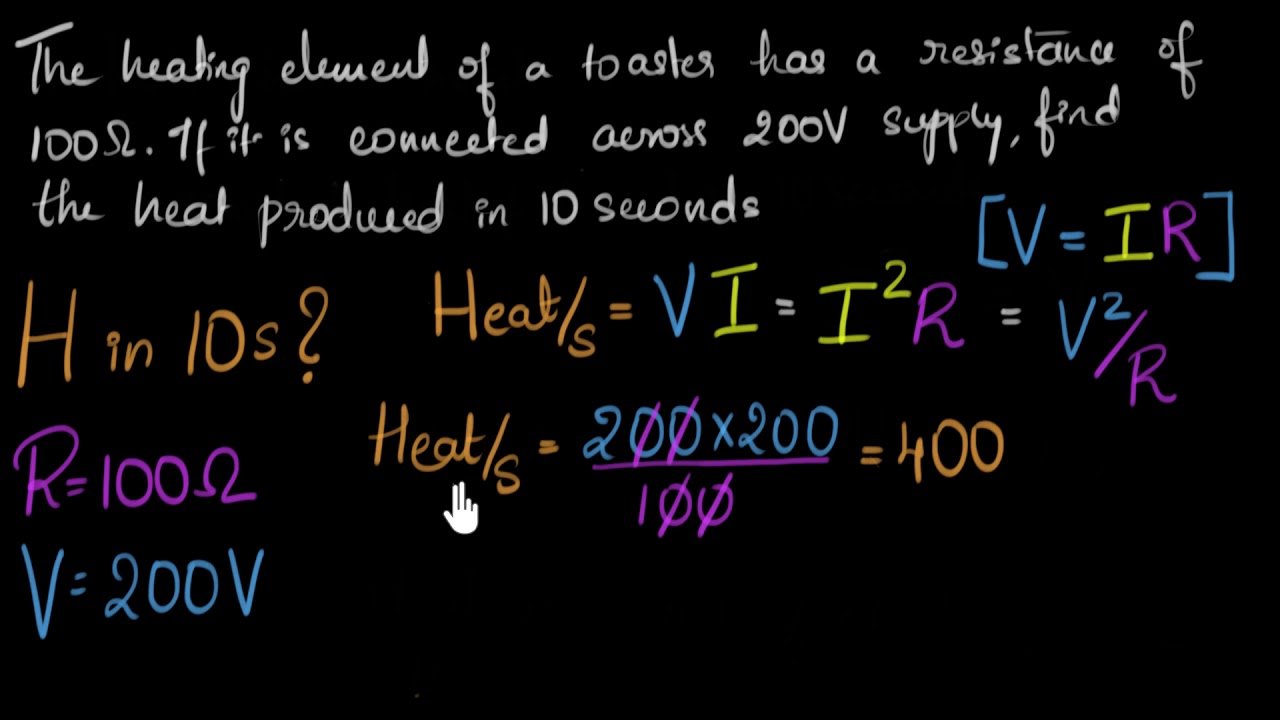 The heating element of a toaster has a resistance of
100Ω. If it is connected across 200V supply, find
the heat produced in 10 seconds
[V = IR]
H in 10s?
Heat/s = VI = I²R = V²/R
R = 100Ω
Heat/s = 200 × 200 / 100 = 400
V = 200V